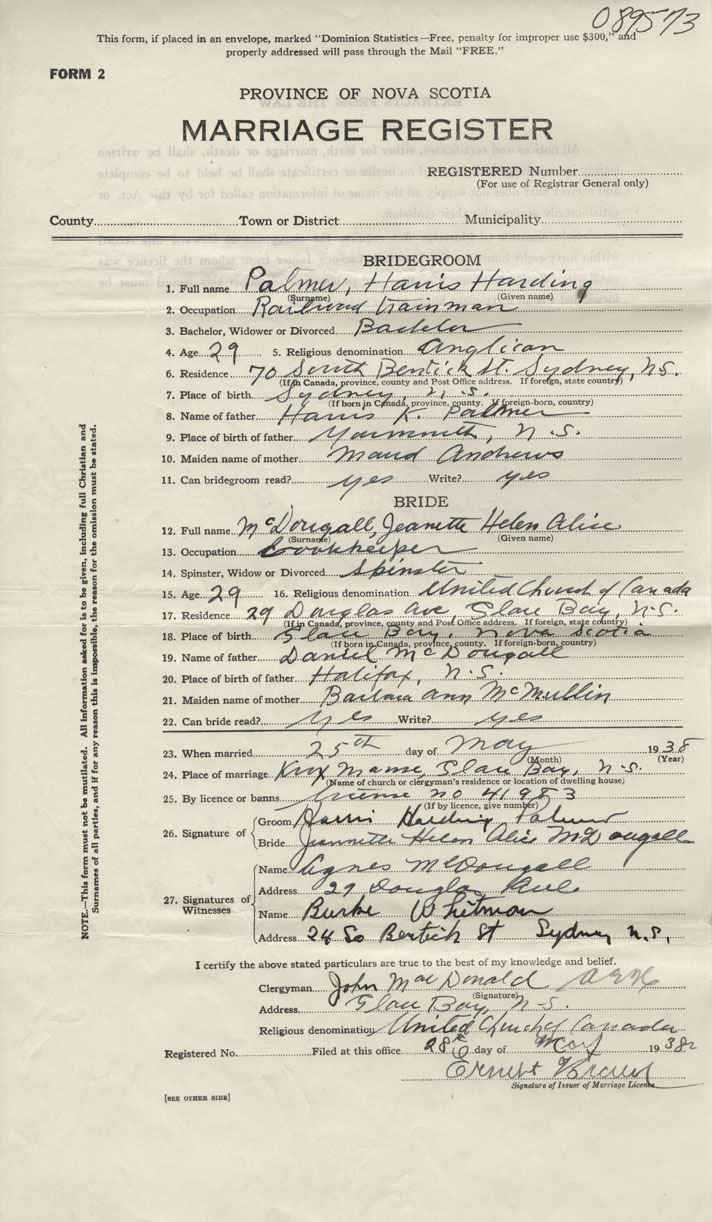 089573
This form, if placed in an envelope, marked "Dominion Statistics—Free, penalty for improper use $300," and
properly addressed will pass through the Mail "FREE."
FORM 2
PROVINCE OF NOVA SCOTIA
MARRIAGE REGISTER
REGISTERED Number
(For use of Registrar General only)
County Town or District Municipality
BRIDEGROOM
1. Full name Palmer, Harris Harding
(Surname) (Given name)
2. Occupation Railroad trainman
3. Bachelor, Widower or Divorced Bachelor
4. Age 29 5. Religious denomination Anglican
6. Residence 70 South Bentick St. Sydney, N.S.
(If in Canada, province, county and Post Office address. If foreign, state country)
7. Place of birth Sydney, N.S.
(If born in Canada, province, county. If foreign-born, country)
8. Name of father Harris K. Palmer
9. Place of birth of father Yarmouth, N.S.
10. Maiden name of mother Maud Andrews
11. Can bridegroom read? yes Write? yes
BRIDE
12. Full name McDougall, Jeanette Helen Alice
(Surname) (Given name)
13. Occupation Bookkeeper
14. Spinster, Widow or Divorced Spinster
15. Age 29 16. Religious denomination United Church of Canada
17. Residence 29 Douglas Ave, Glace Bay, N.S.
(If in Canada, province, county and Post Office address. If foreign, state country)
18. Place of birth Glace Bay, Nova Scotia
(If born in Canada, province, county. If foreign-born, country)
19. Name of father Daniel McDougall
20. Place of birth of father Halifax, N.S.
21. Maiden name of mother Barbara Ann McMullin
22. Can bride read? yes Write? yes
23. When married 25th day of May 1938
(Month) (Year)
24. Place of marriage Knox Manse, Glace Bay, N.S.
(Name of church or clergyman's residence or location of dwelling house)
25. By licence or banns License no 41983
(If by licence, give number)
26. Signature of
Groom Harris Harding Palmer
Bride Jeannette Helen Alice McDougall
27. Signatures of Witnesses
Name Agnes McDougall
Address 29 Douglas Ave.
Name Burke Whitman
Address 24 So Bentick St Sydney N.S.
I certify the above stated particulars are true to the best of my knowledge and belief.
Clergyman John MacDonald
(Signature)
Address Glace Bay, N.S.
Religious denomination United Church of Canada
Registered No. Filed at this office 28th day of May 1938
Ernest
Signature of Issuer of Marriage License
[SEE OTHER SIDE]
NOTE.—This form must not be mutilated. All information asked for is to be given, including full Christian and
Surnames of all parties, and if for any reason this is impossible, the reason for the omission must be stated.